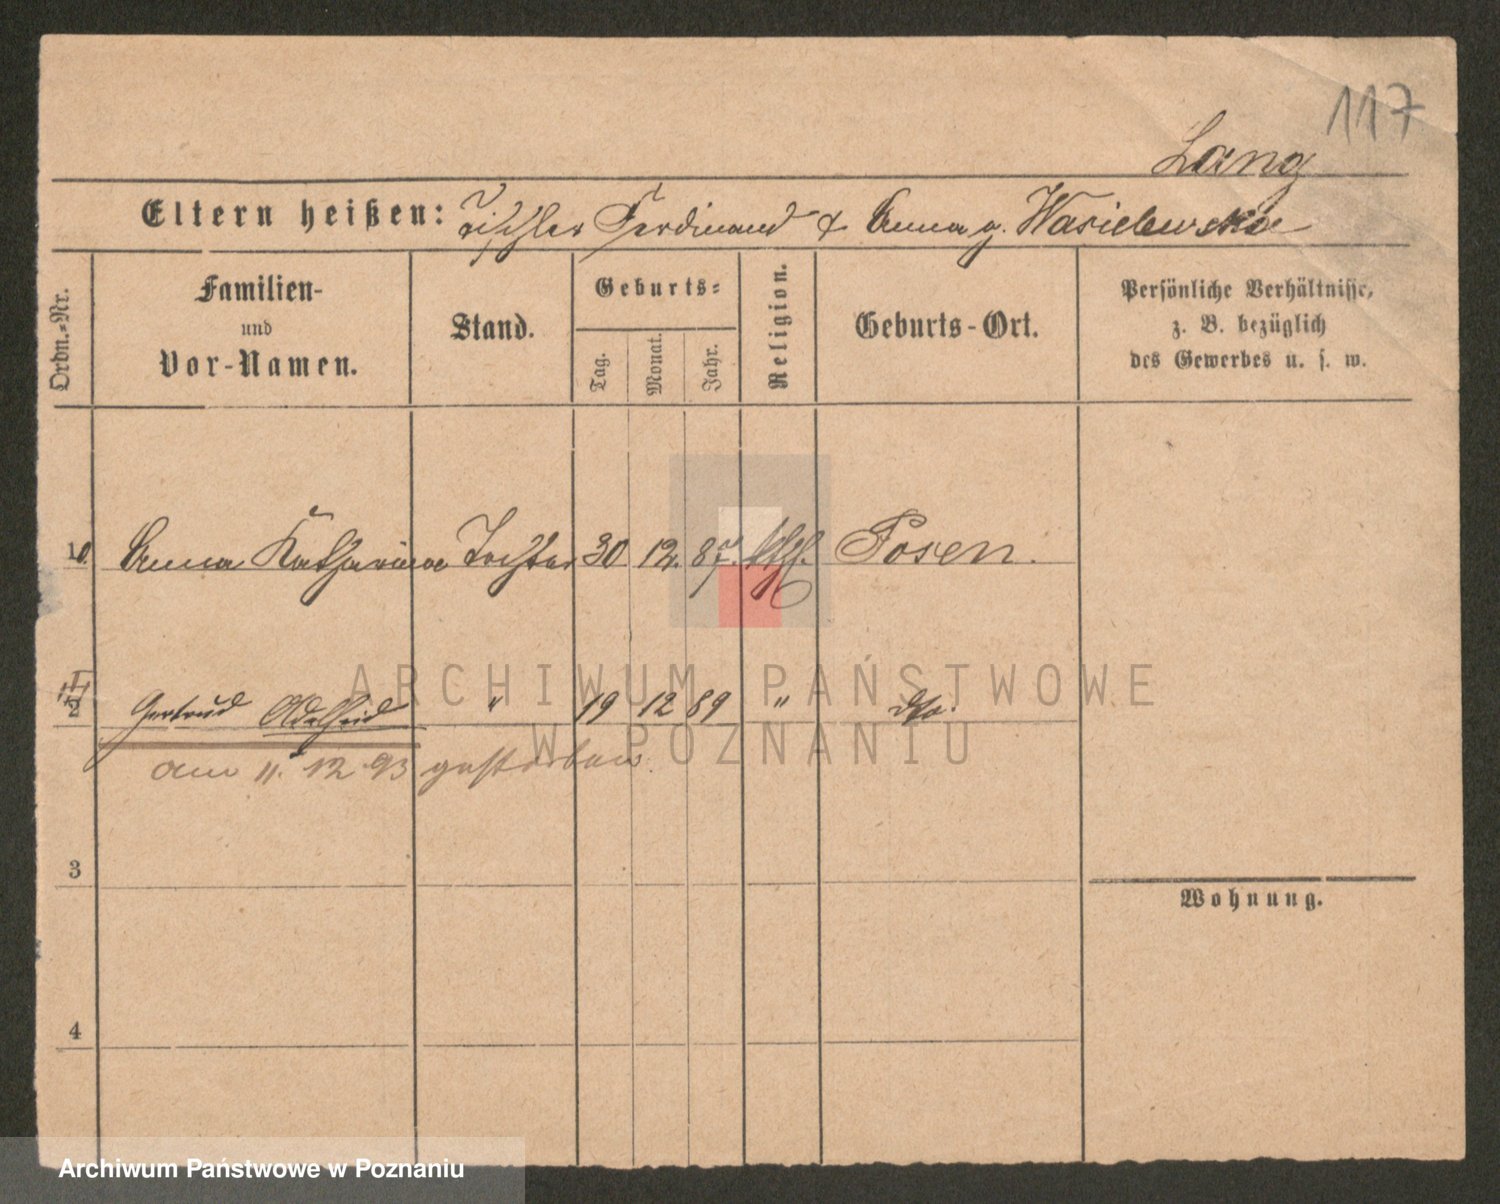 117
Lang
Eltern heißen: Tischler Ferdinand & Anna g. Wasielewska
Ordn.-Nr.
Familien-
und
Vor-Namen.
Stand.
Geburts-
Tag.
Monat.
Jahr.
Religion.
Geburts-Ort.
Persönliche Verhältnisse,
z. B. bezüglich
des Gewerbes u. s. w.
10 Anna Katharina Tochter 30 12. 87. kth. Posen.
2 Gertrud Adelheid " 19 12 89 " dto.
am 11. 12 93 gestorben
3
Wohnung.
4
ARCHIWUM PAŃSTWOWE
W POZNANIU
Archiwum Państwowe w Poznaniu